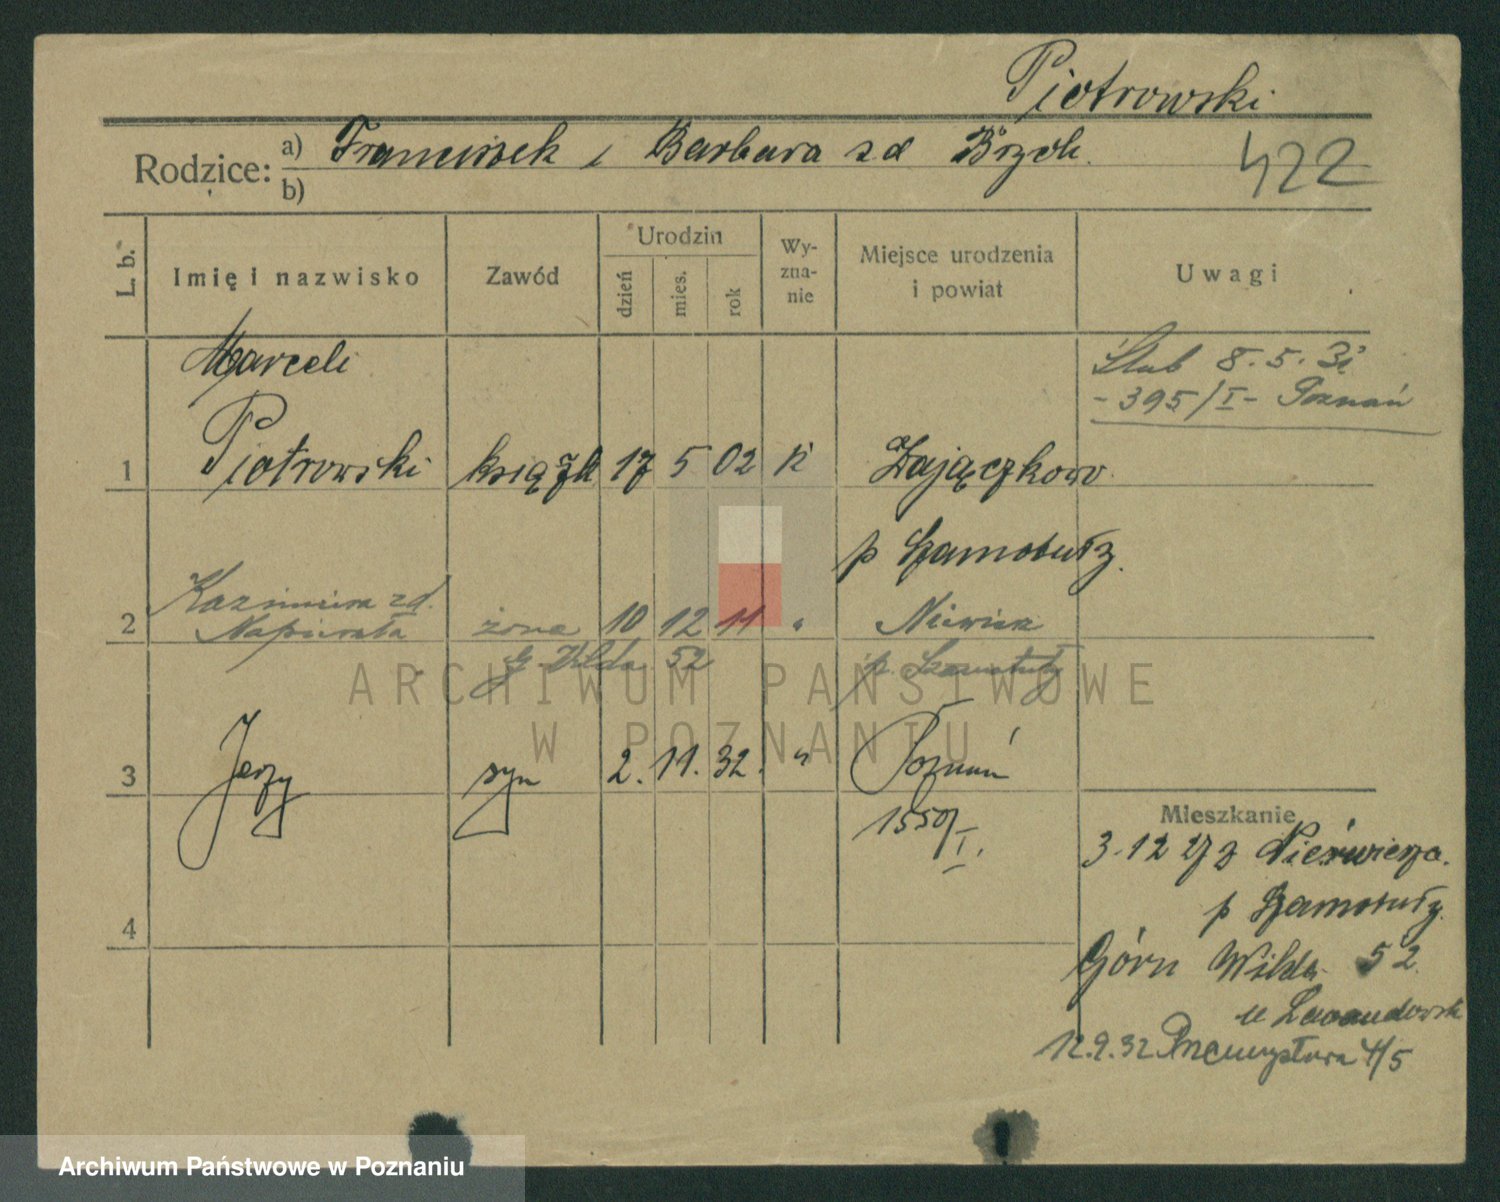 Piotrowski
Rodzice: a) Franciszek i Barbara zd
b)
422
L. b. Imię i nazwisko Zawód Urodzin dzień mies. rok Wy-zna-nie Miejsce urodzenia i powiat Uwagi
Marceli
Ślub 8.5.31
-395/I- Poznań
1 Piotrowski 17 5 02 k Zajączkowo
p Szamotuły.
Kazimiera zd.
2 Napierała żona 10 12 11 " 
G Wilda 52 p. Szamotuły
3 Jerzy syn 2. 11. 32. " Poznań
1550/I.
Mieszkanie
3.12 27 z
p Szamotuły.
4
Górn Wilda 52
u
12.9.32 Przemysłowa 4/5
ARCHIWUM PAŃSTWOWE
W POZNANIU
Archiwum Państwowe w Poznaniu